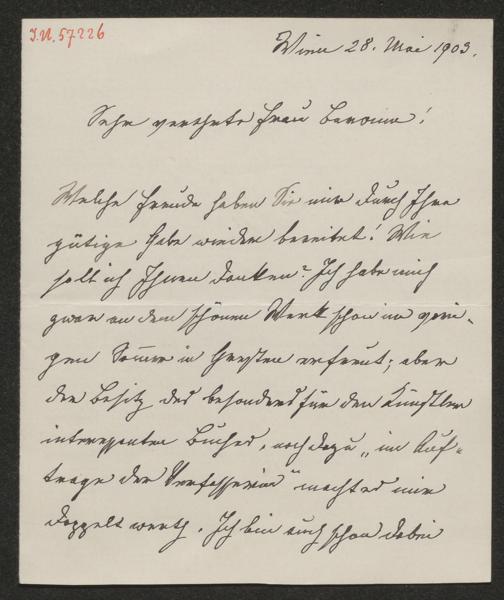 I.N. 57226
Wien 28. Mai 1903.
Sehr verehrte Frau Baronin!
Welche Freude haben Sie mir durch Ihre
gütige Gabe wieder bereitet! Wie
soll ich Ihnen danken? Ich habe mich
zwar an dem schönen Werk schon im vori-
gen Sommer in Gresten erfreut; aber
der Besitz des besonders für den Künstler
interessanten Buches, noch dazu „im Auf-
trage der Verfasserin" macht es mir
doppelt werth. Ich bin auch schon dabei